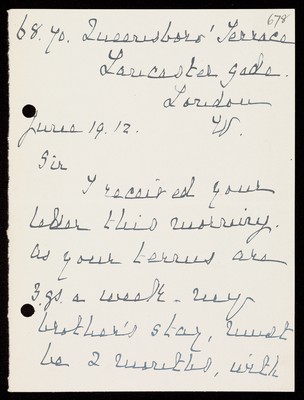 678
68.70. Queensboro' Terrace
Lancaster gate.
London
June 19. 12. W.
Sir
I received your
letter this morning.
as your terms are
3.gs. a week - my
brother's stay, must
be 2 months, with